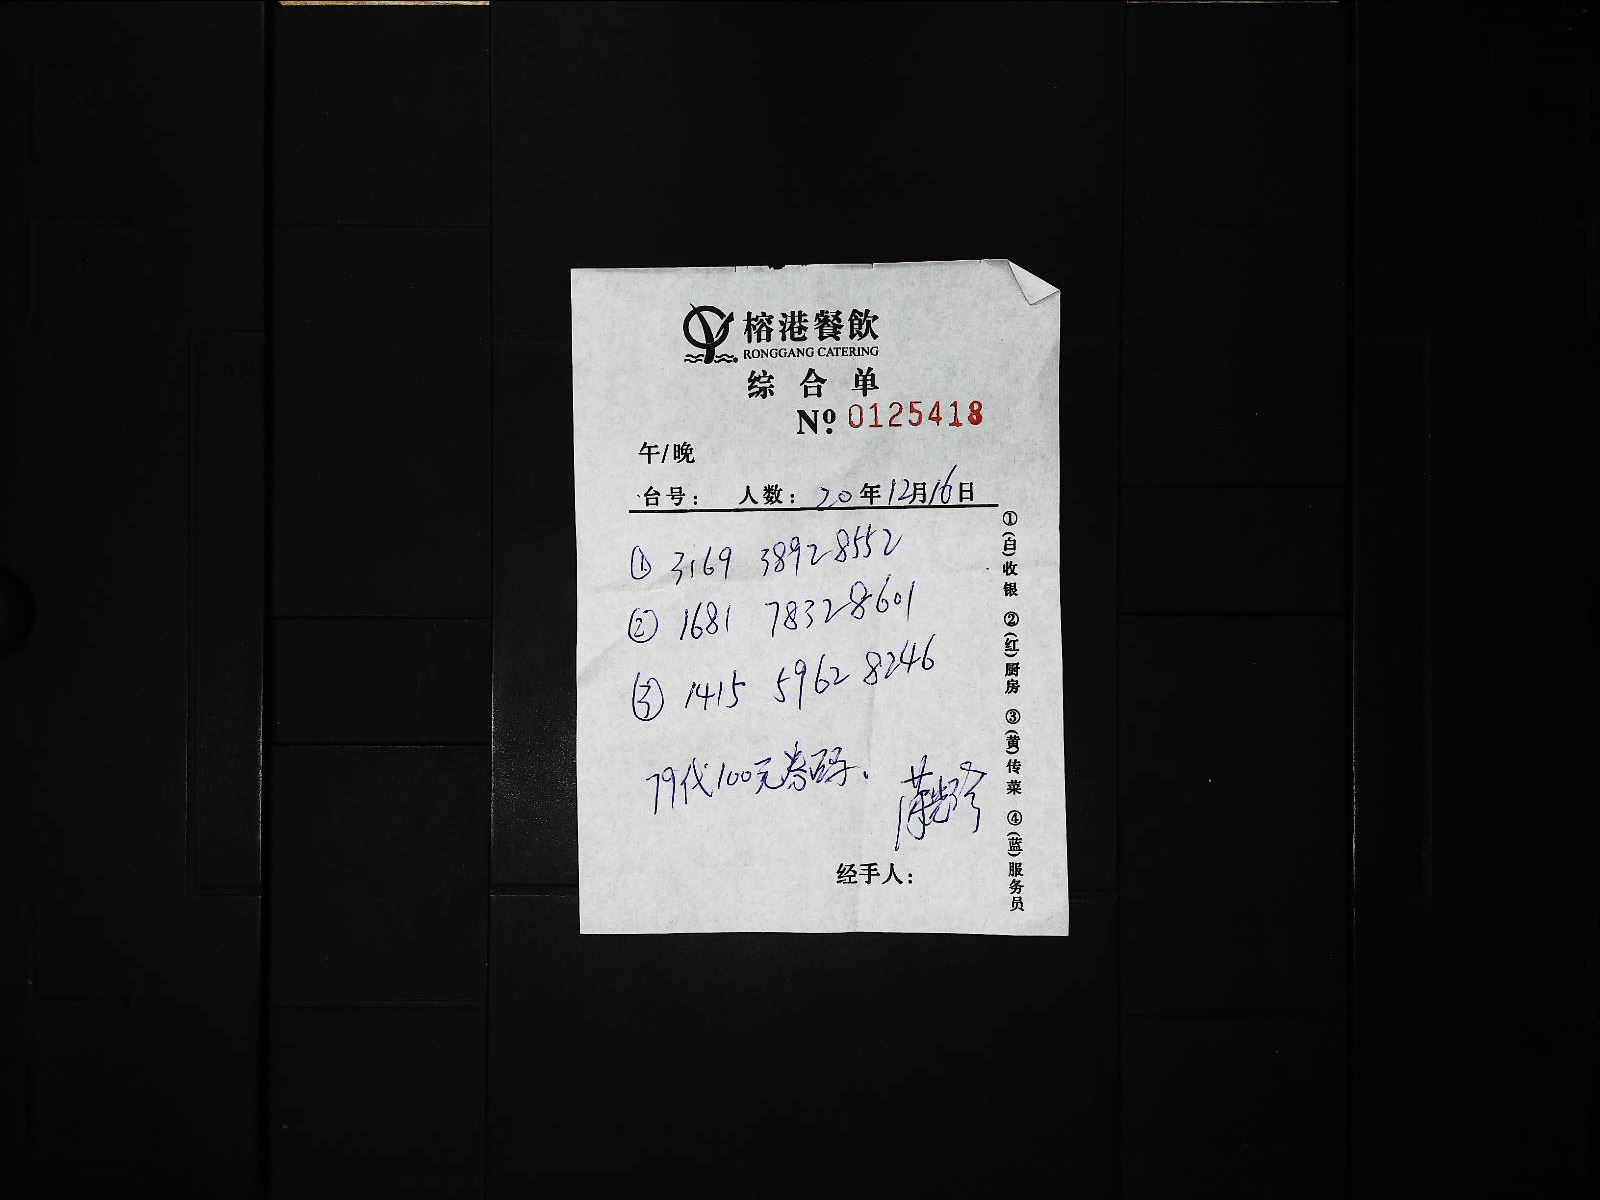 榕港餐飲
RONGGANG CATERING
综合单
Nº 0125418
午/晚
台号： 人数： 20年12月16日
① 3169 38928552
② 1681 78328601
③ 1415 59628246
79代100元券码、
经手人：
①(白)收银 ②(红)厨房 ③(黄)传菜 ④(蓝)服务员